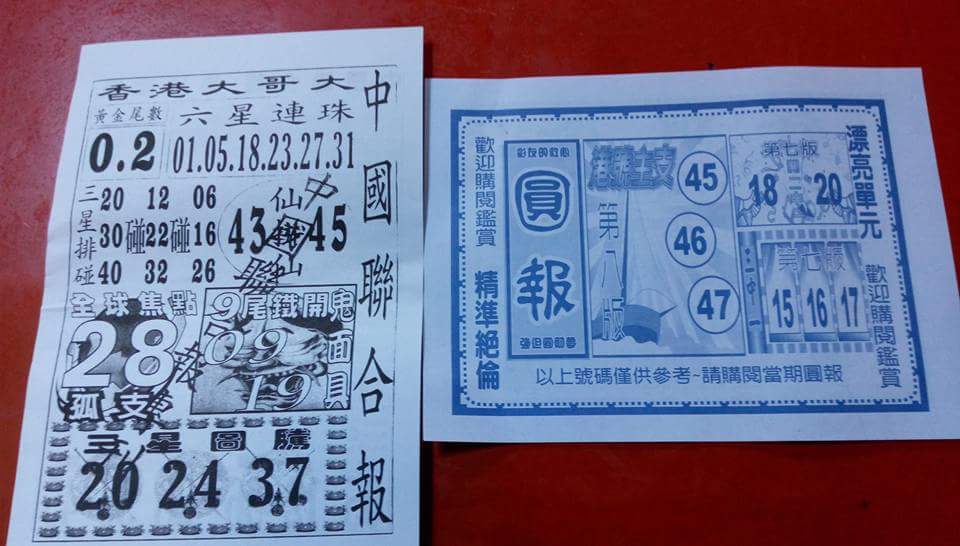 香港大哥大
黃金尾數
六星連珠
0.2
01.05.18.23.27.31
三星排碰
20 12 06
30碰22碰16
40 32 26
仙
43 45
仙
全球焦點
28
孤支
9尾鐵開
09
19
鬼面具
三星圖騰
20 24 37
中國聯合報
歡迎購閱鑑賞
精準絕倫
圓報
港號主支
第八版
45
46
47
第七版
18 20
第七版
15 16 17
漂亮單元
歡迎購閱鑑賞
以上號碼僅供參考~請購閱當期圓報